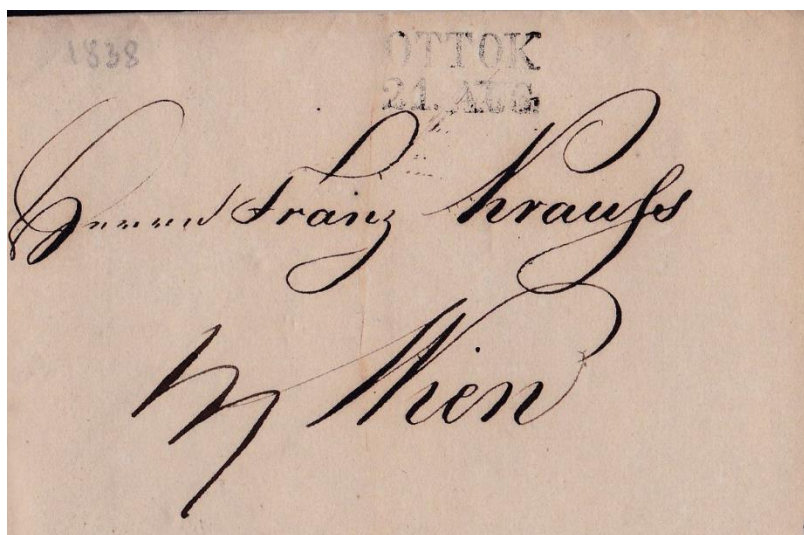 1838
OTTOK
21. AUG
Herrn Franz Krauſs
Wien